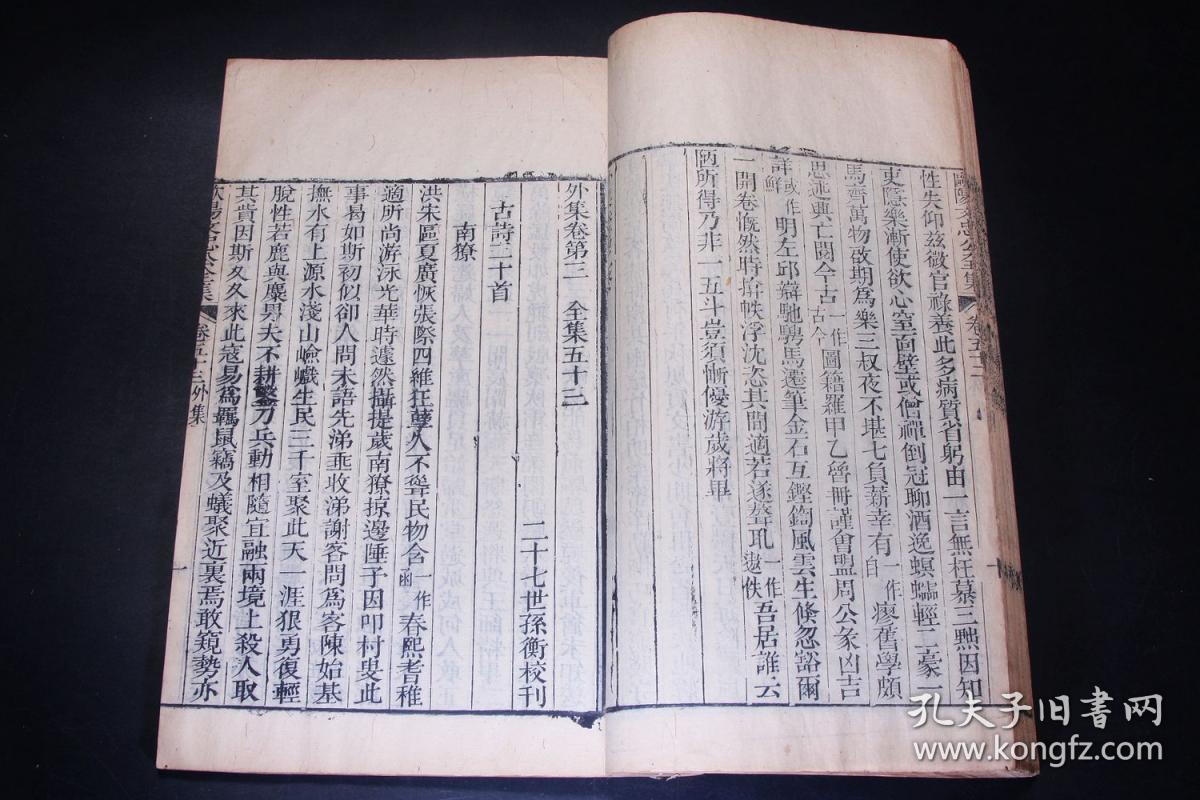 歐陽文忠公全集 卷五十二
性失仰兹微官祿養此多病質省躬由一言無枉慕三黜因知
吏隱樂漸使欲心窒面壁或僧禪倒冠聊酒逸螟蠕輕二豪
馬齊萬物敔期為樂三叔夜不堪七負薪幸有一作自瘳舊學頗
思述興亡閱今古一作古今圖籍羅甲乙魯冊謹會盟周公彖凶吉
詳一作鮮明左邱辯馳騁馬遷筆金石互鏗鍧風雲生倏忽豁爾
一開卷慨然時揜帙浮沈恣其間適若遂聱耴一作遨佚吾居誰云
陋所得乃非一五斗豈須慚優游歲將畢
外集卷第三 全集五十三
二十七世孫衡校刊
古詩二十首
南獠
洪朱區夏廣恢張際四維狂孽久不聳民物含一作涵春熙耆稚
適所尚游泳光華時遽然攝提歲南獠掠邊陲予因叩村叟此
事曷如斯初似卻人問未語先涕垂收涕謝客問爲客陳始基
撫水有上源水淺山嶮巇生民三千室聚此天一涯狠勇復輕
脫性若鹿與麋男夫不耕鑿刀兵動相隨宜融兩境上殺人取
其貲因斯久久來此寇易爲羈鼠竊及蟻聚近裏焉敢窺勢亦
歐陽文忠公全集 卷五十三外集 一
孔夫子旧书网
www.kongfz.com